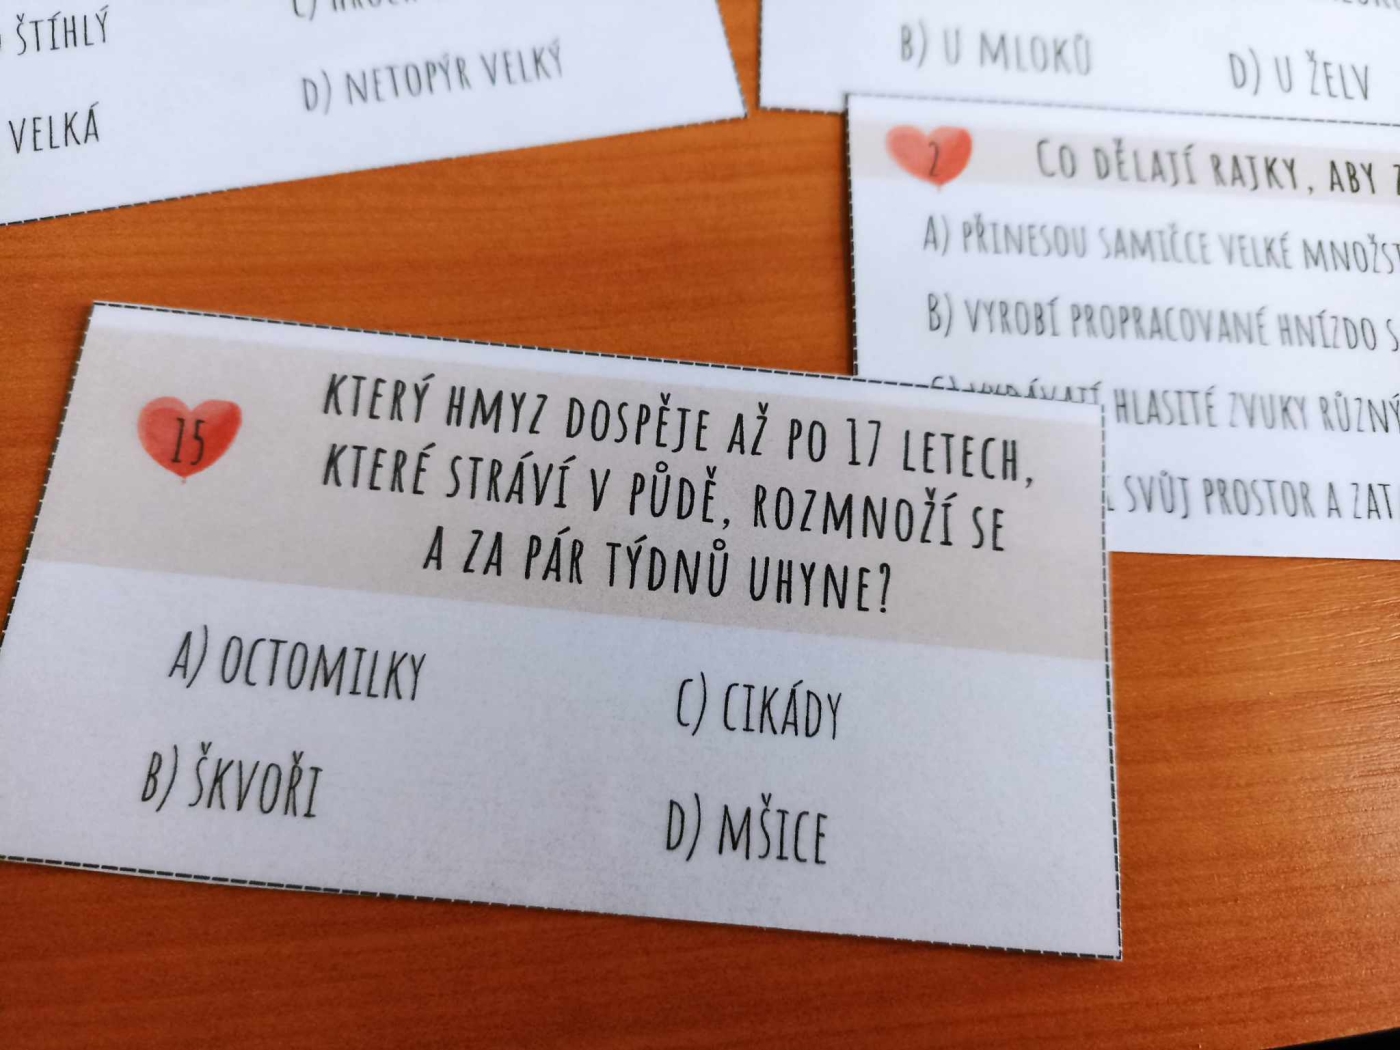 ŠTÍHLÝ
VELKÁ
D) NETOPÝR VELKÝ
B) U MLOKŮ
D) U ŽELV
2
CO DĚLAJÍ RAJKY, ABY
A) PŘINESOU SAMIČCE VELKÉ
B) VYROBÍ PROPRACOVANÉ HNÍZDO S
HLASITÉ ZVUKY
SVŮJ PROSTOR A
15
KTERÝ HMYZ DOSPĚJE AŽ PO 17 LETECH,
KTERÉ STRÁVÍ V PŮDĚ, ROZMNOŽÍ SE
A ZA PÁR TÝDNŮ UHYNE?
A) OCTOMILKY
B) ŠKVOŘI
C) CIKÁDY
D) MŠICE